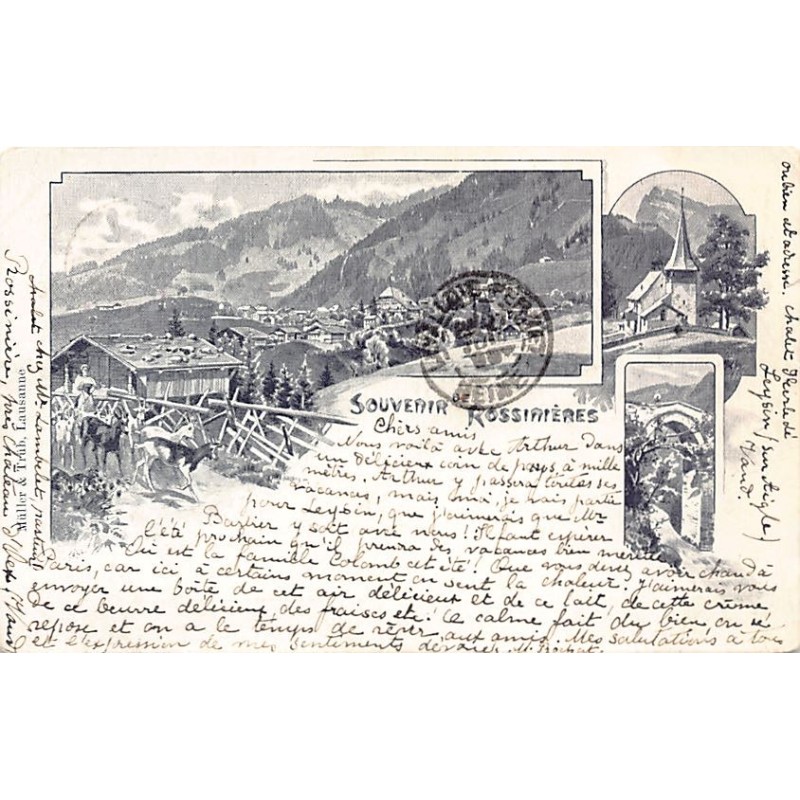 SOUVENIR DE ROSSINIÈRES
Chers amis
Nous voilà avec Arthur dans
un délicieux coin de pays, à mille
mètres, Arthur y passera toutes ses
vacances, mais, moi, je vais partir
pour Leysin, que j'aimerais que Mr
Barbier y soit avec nous! Il faut espérer
l'été prochain qu'il prendra des vacances bien méritées
Où est la famille Colomb cet été! Que vous devez avoir chaud à
Paris, car ici à certains moment on sent la chaleur. J'aimerais vous
envoyer une boîte de cet air délicieux et de ce lait, de cette crème
de ce beurre délicieux, des fraises etc! Ce calme fait du bien, on se
repose et on a le temps de rêver aux amis. Mes salutations à tous
et l'expression de mes sentiments dévoués M. Rochat.
Chalet chez Mr Lambelet, pasteur
Rossinière, près Château d'Oex, (Vaud)
Müller & Trüb, Lausanne
ou bien
chalet
Leysin (sur Aigle)
Vaud.